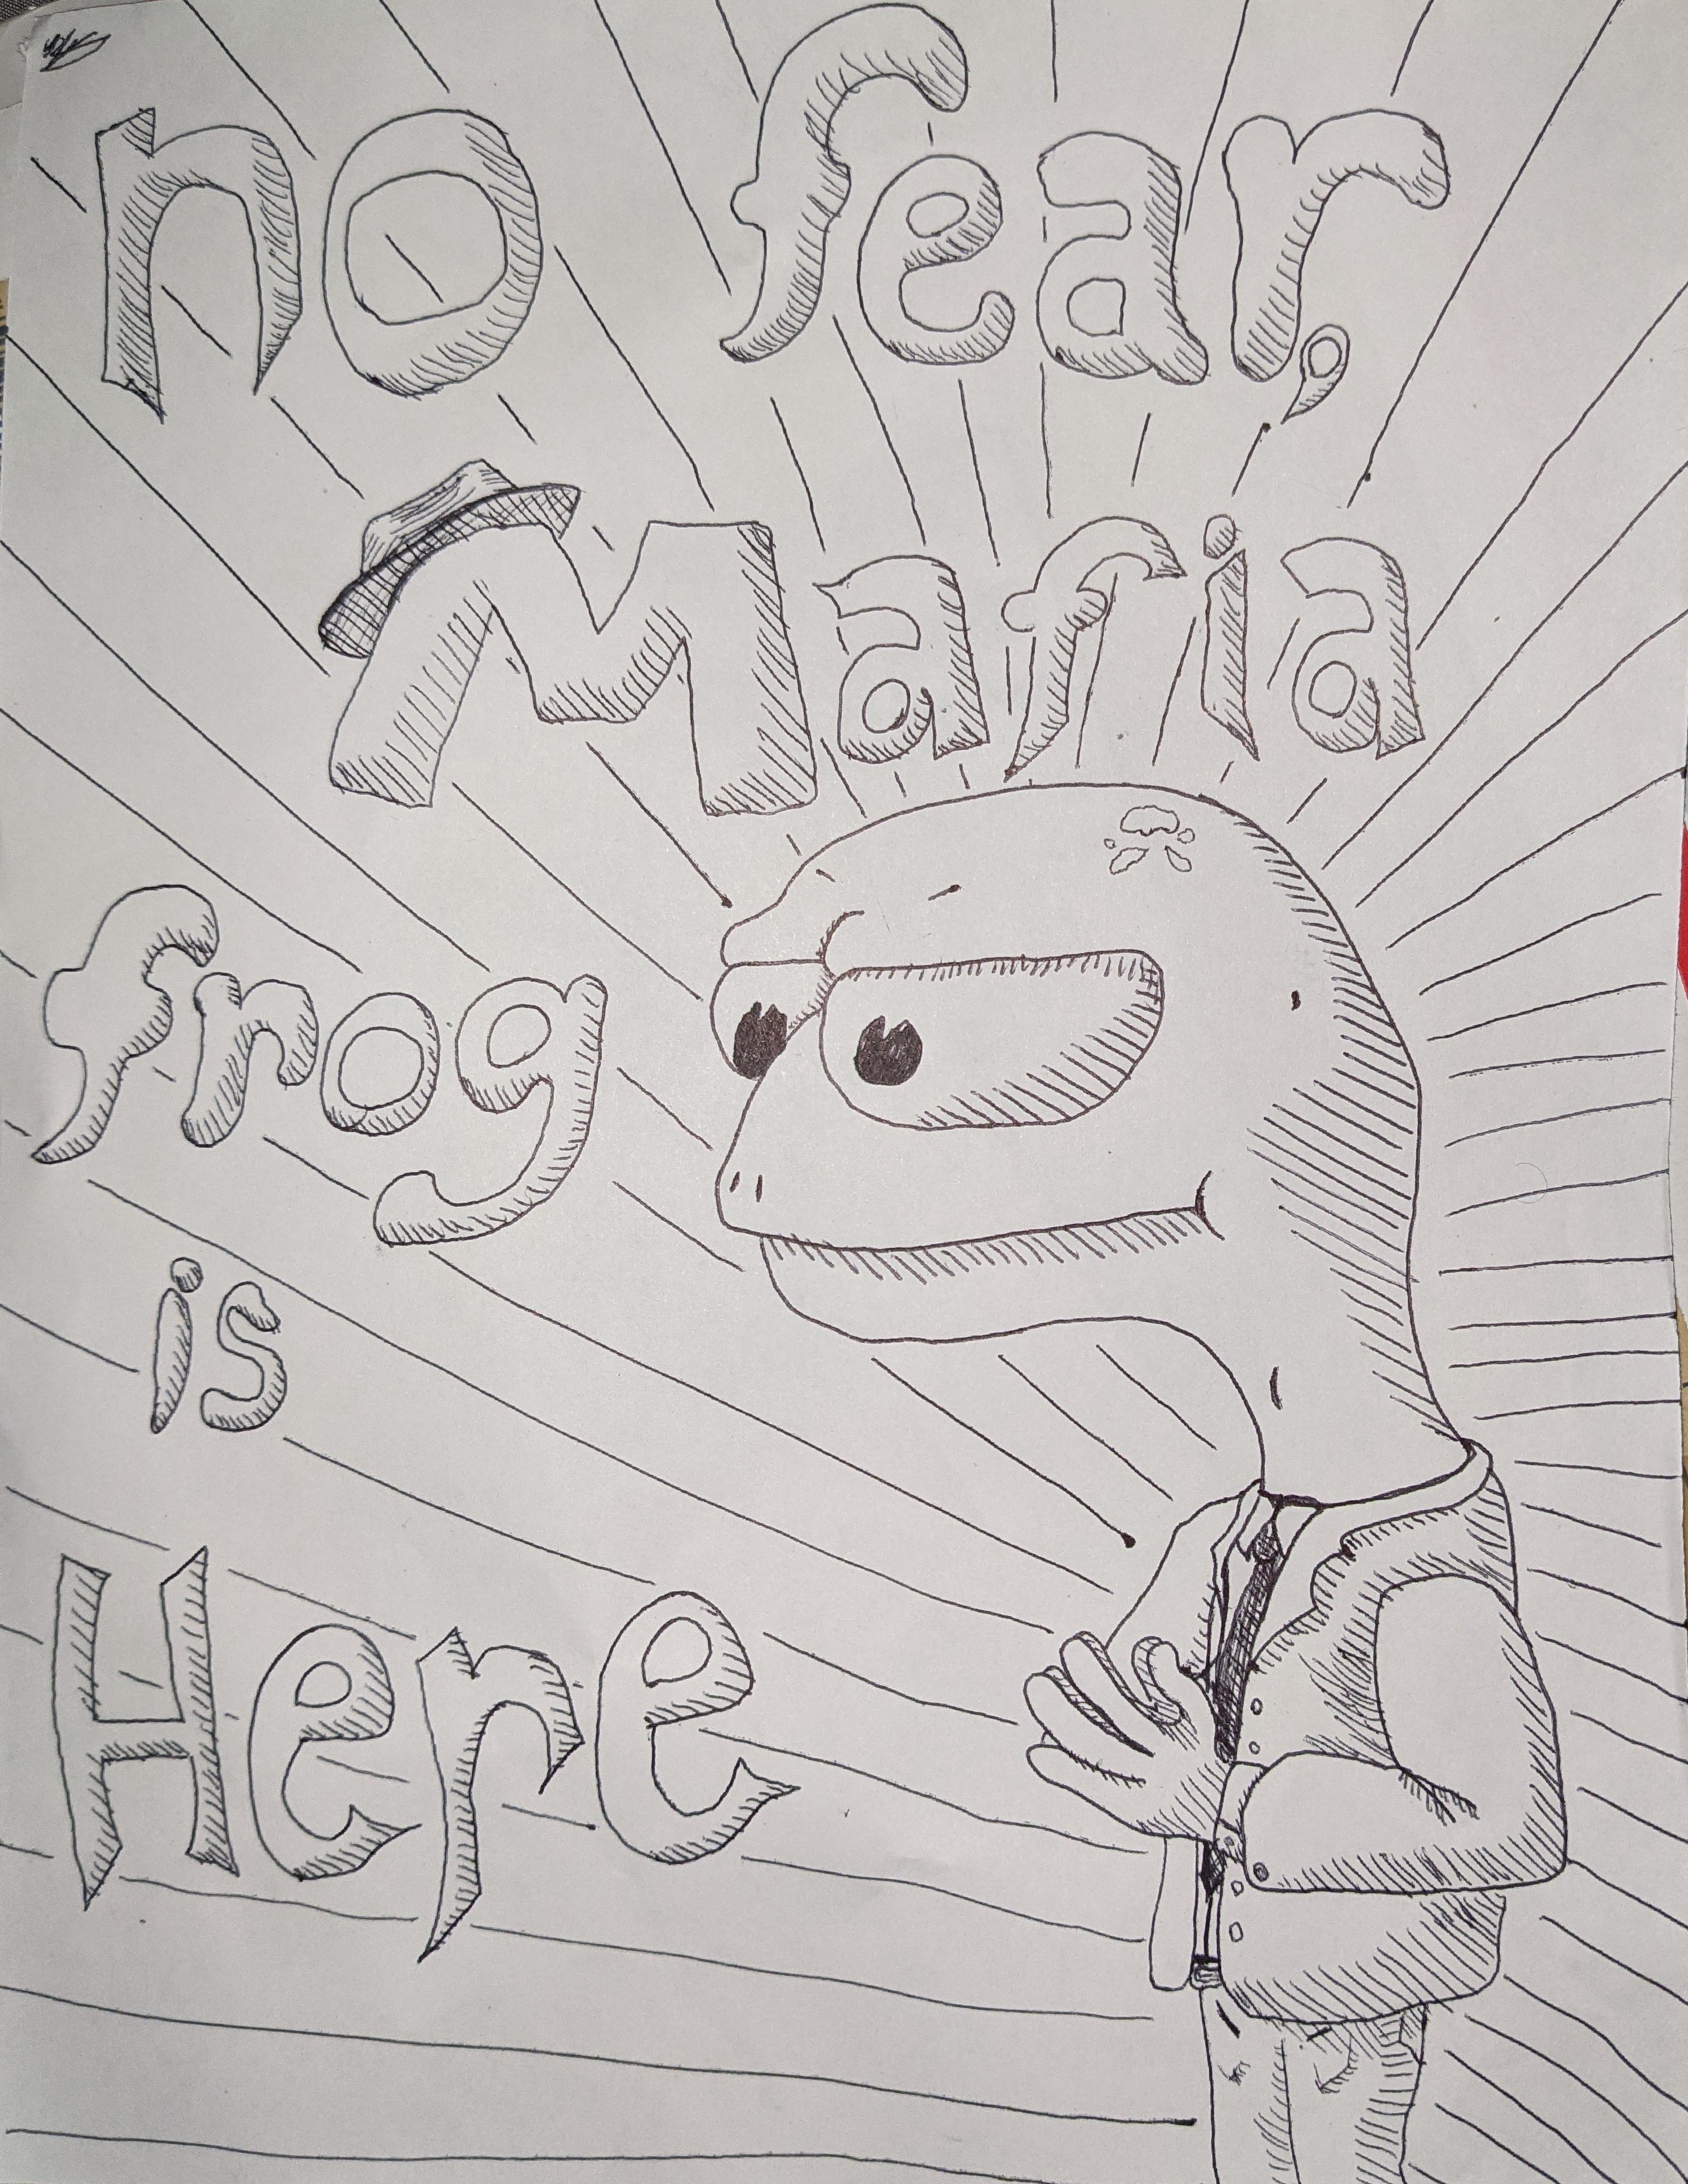 no fear,
Mafia
frog
is
Here